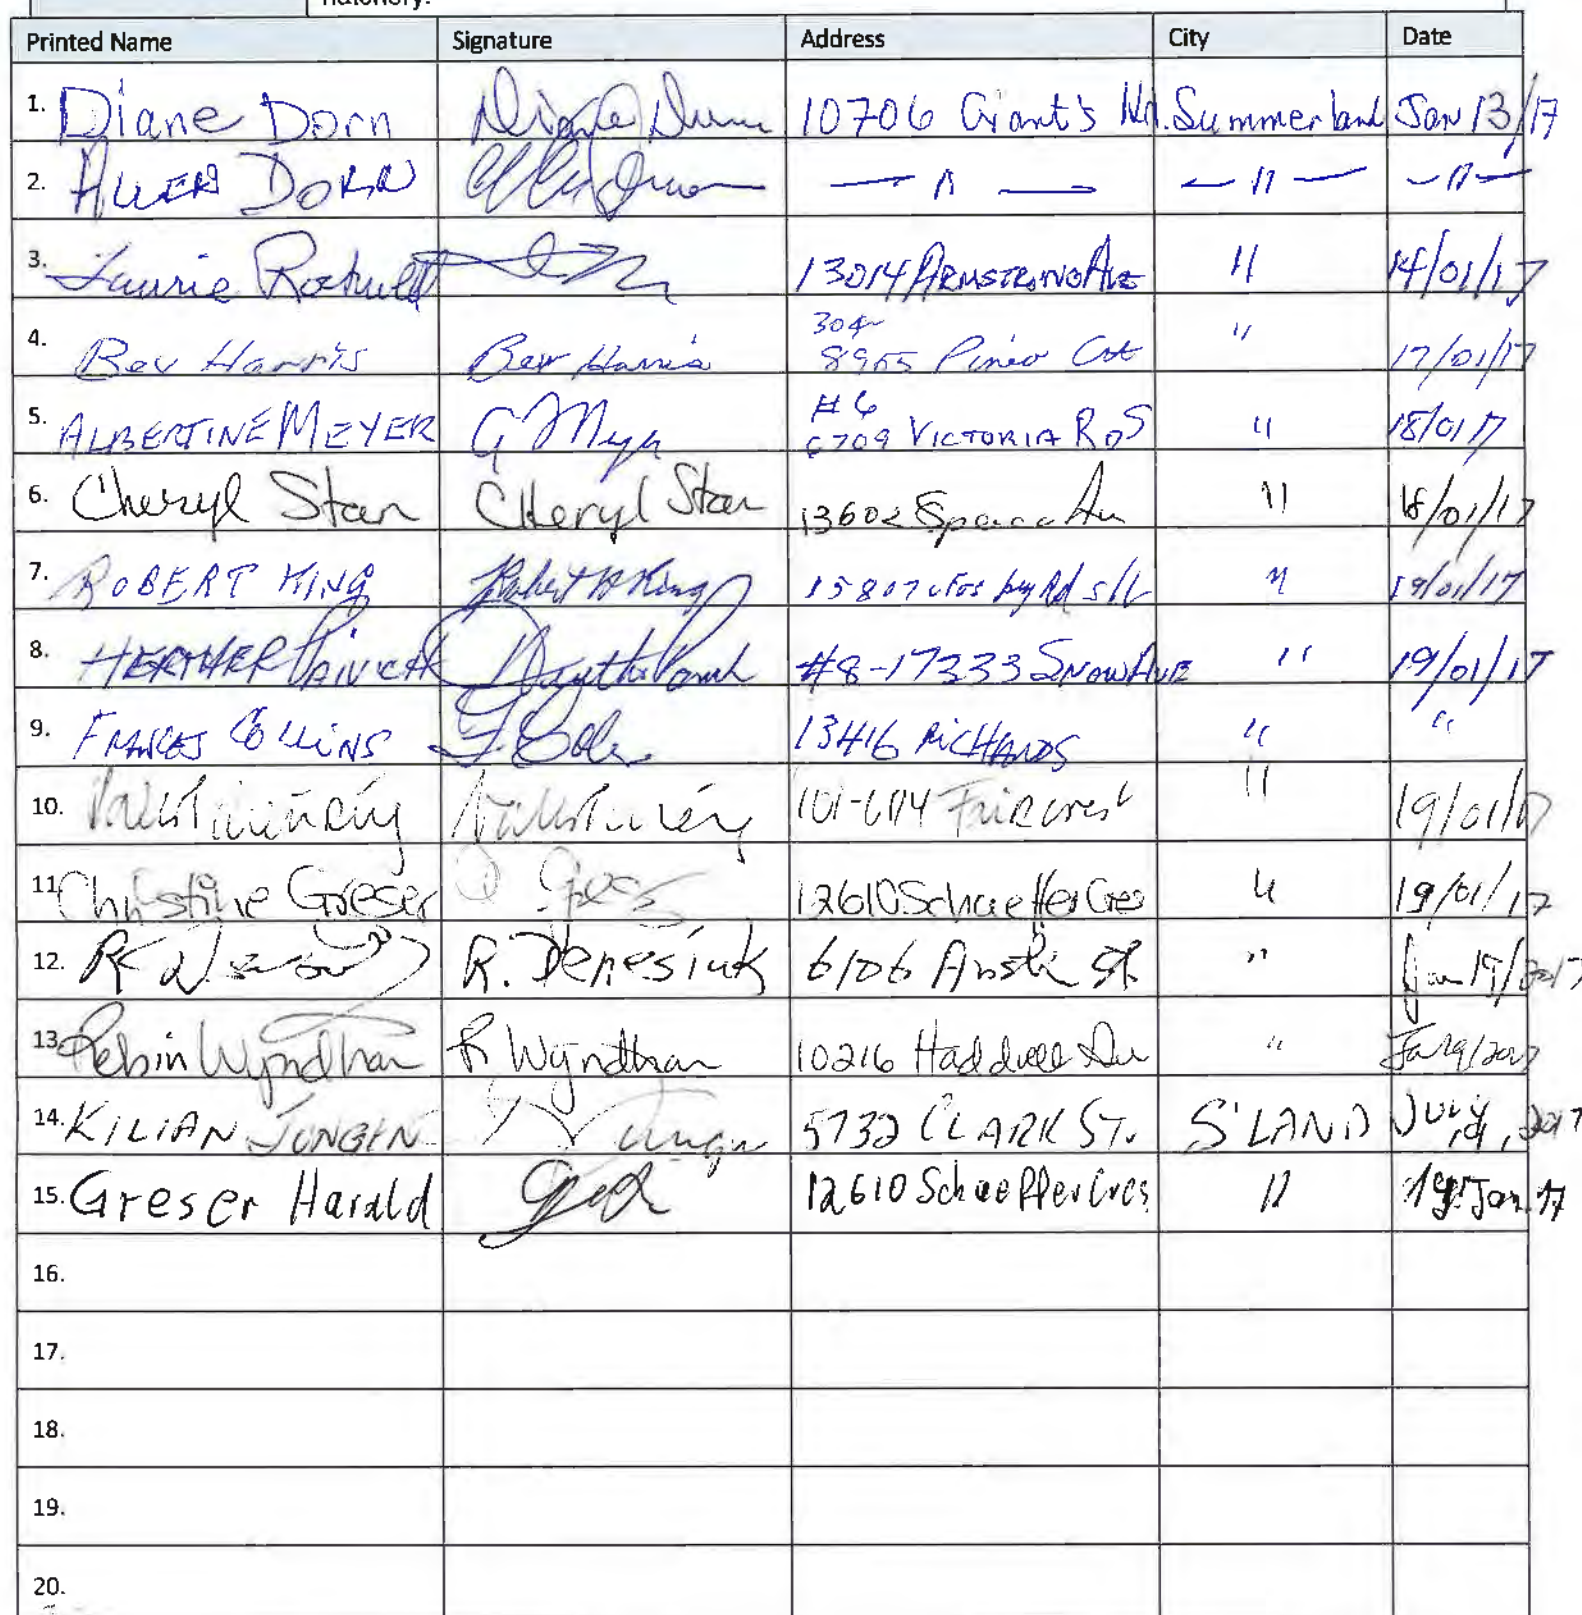 Printed Name Signature Address City Date
1. Diane Dorn Diane Dorn 10706 Giant's Hd. Summerland Jan 13/17
2. ALLEN DORN — 〃 — — 〃 — — 〃 —
3. Laurie Rockwell 13014 ARMSTRONG AVE 〃 14/01/17
4. Bev Harris Bev Harris 304 8955 Pineo Crt 〃 17/01/17
5. ALBERTINE MEYER A Meyer #6 6709 VICTORIA RD S 〃 18/01/17
6. Cheryl Starr Cheryl Starr 13602 〃 18/01/17
7. ROBERT KING Robert King 15807 Rd 〃 19/01/17
8. HEATHER #8-17333 SNOW AVE 〃 19/01/17
9. FRANCES COLLINS 13416 RICHARDS 〃 〃
10. Faircrest 〃 19/01/17
11. Christine Greser 12610 Schaeffer Cres 〃 19/01/17
12. R. Denesiuk 6106 Austin St. 〃 Jan 19/2017
13. Robin Wyndham R Wyndham 10216 Haddrell Av 〃 Jan 19/2017
14. KILIAN JUNGEN 5732 CLARK ST. S'LAND 19, 2017
15. Greser Harald 12610 Schaeffer Cres 〃 19. Jan. 17
16.
17.
18.
19.
20.